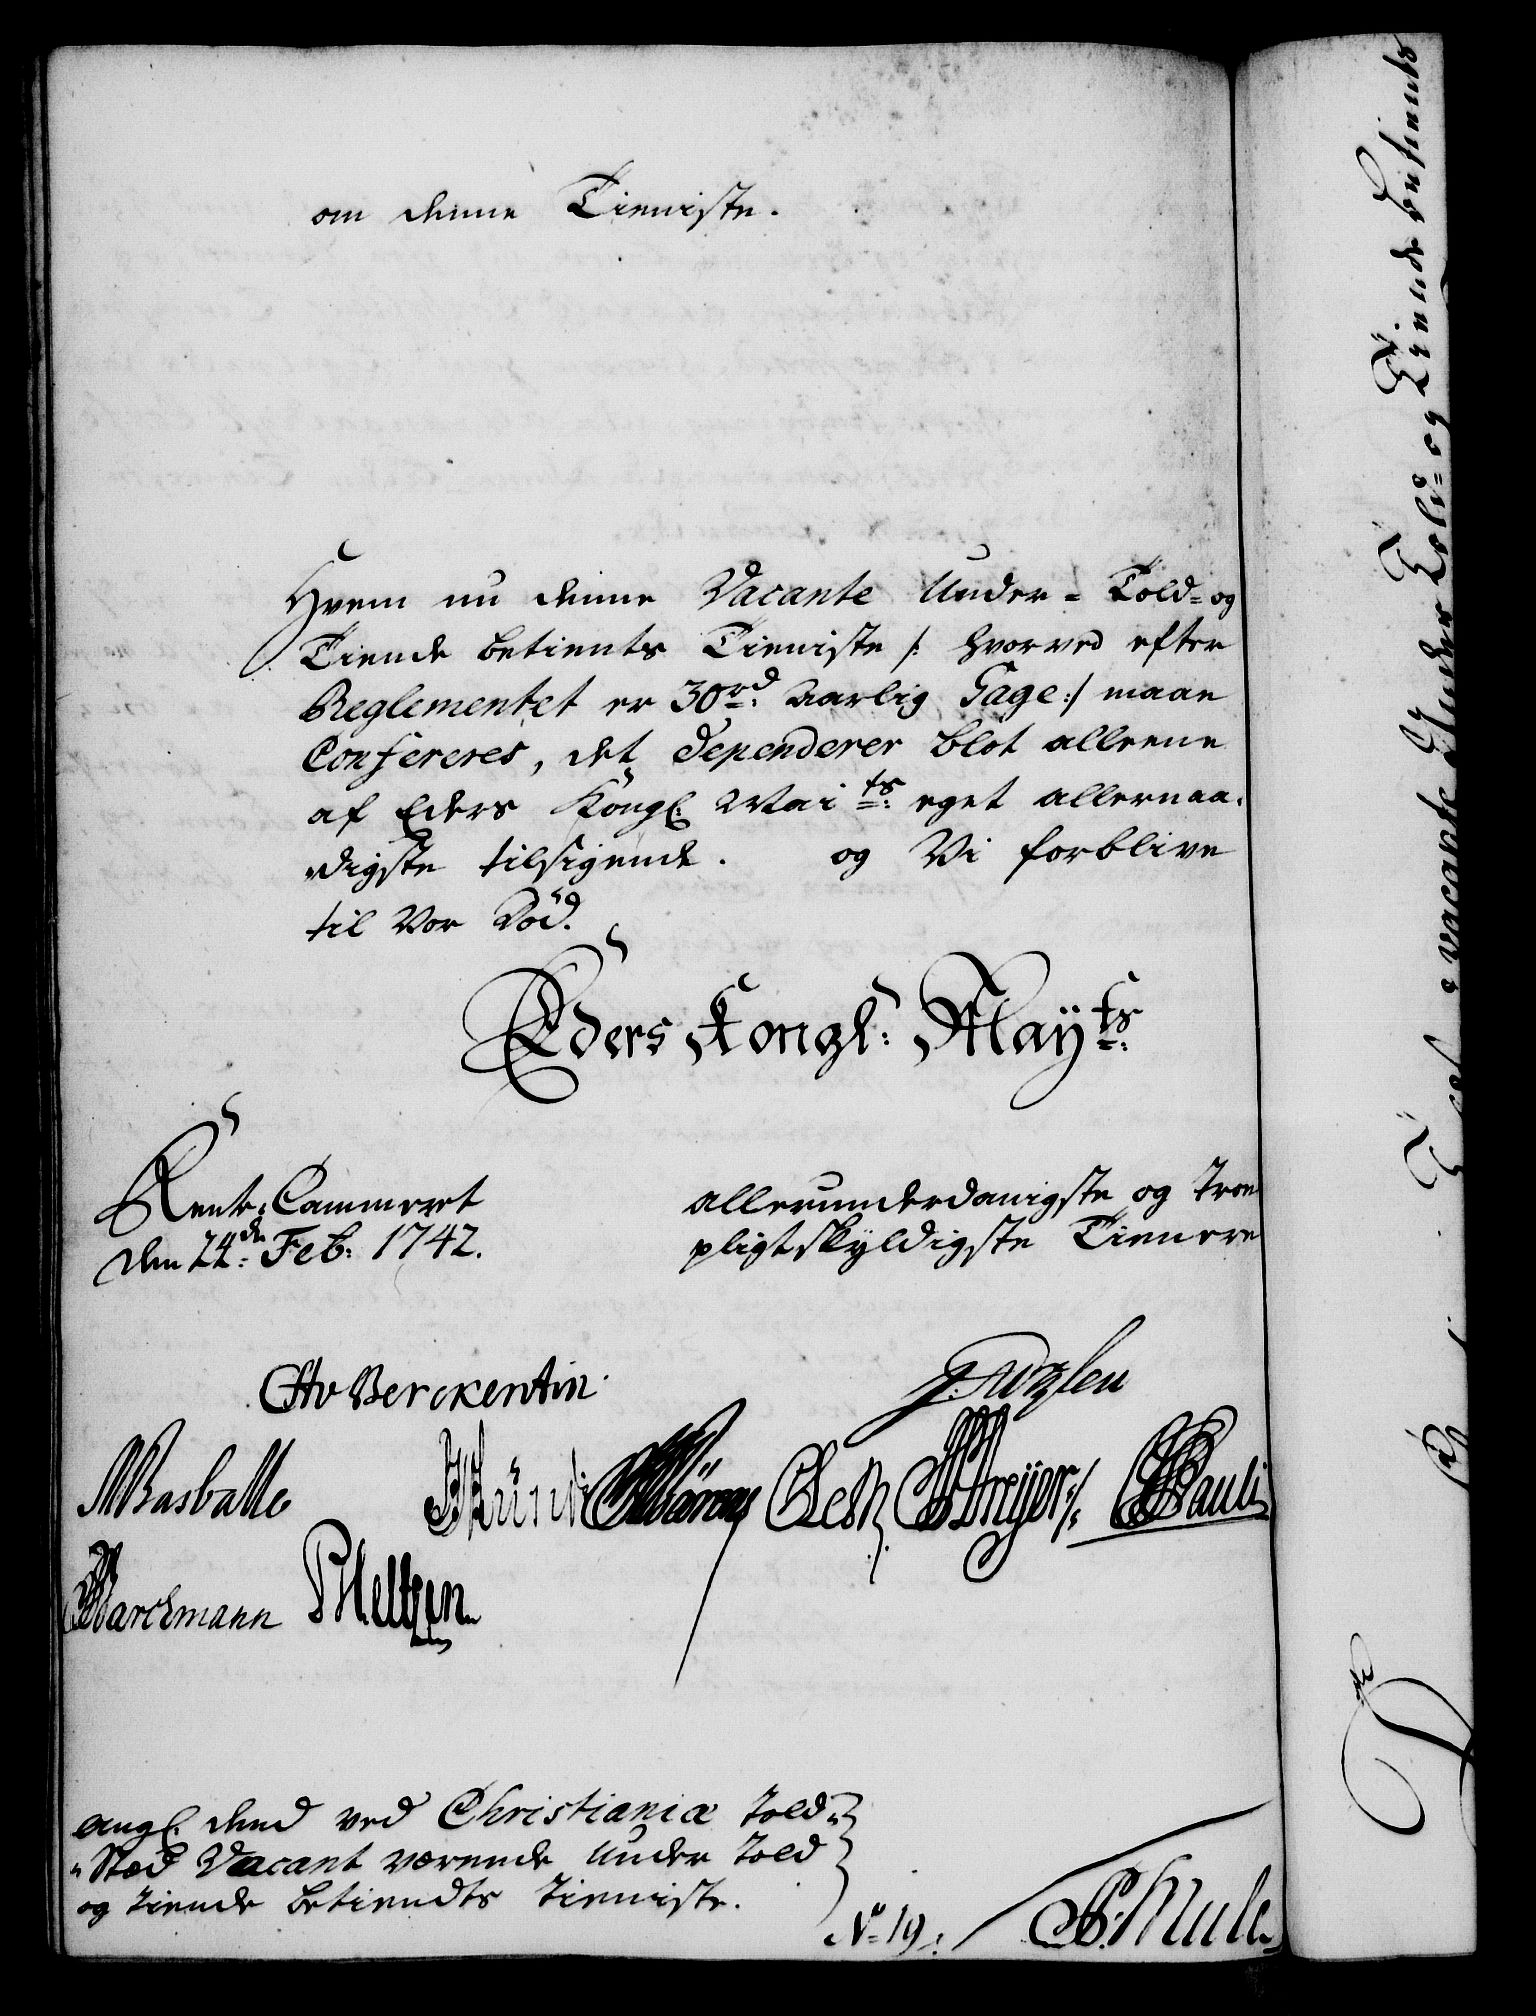 om denne Tieniste.
Hvem nu denne Vacante Under-Told- og
Tiende betients Tieniste /: hvorved efter
Reglementet er 30 rd: Aarlig Gage :/ maae
Confereres, det dependerer blot alleene
af Eders Kongl: Mai ts: eget allernaa-
digste tilsigende. og Vi forblive
til Vor Død.
Eders Kongl: May ts:
Rente-Cammeret
den 22de Feb: 1742.
allerunderdanigste og troe
pligtskyldigste Tienere
Otto Berckentin.
Basballe
Pauli
Barchmann PHeltzen
angl: dend ved Christianiæ Told-
Stæd Vacant værende Under Told
og tiende betiendts tieniste.
No 19:
Mule
vacante Under Told- og Tiende betients